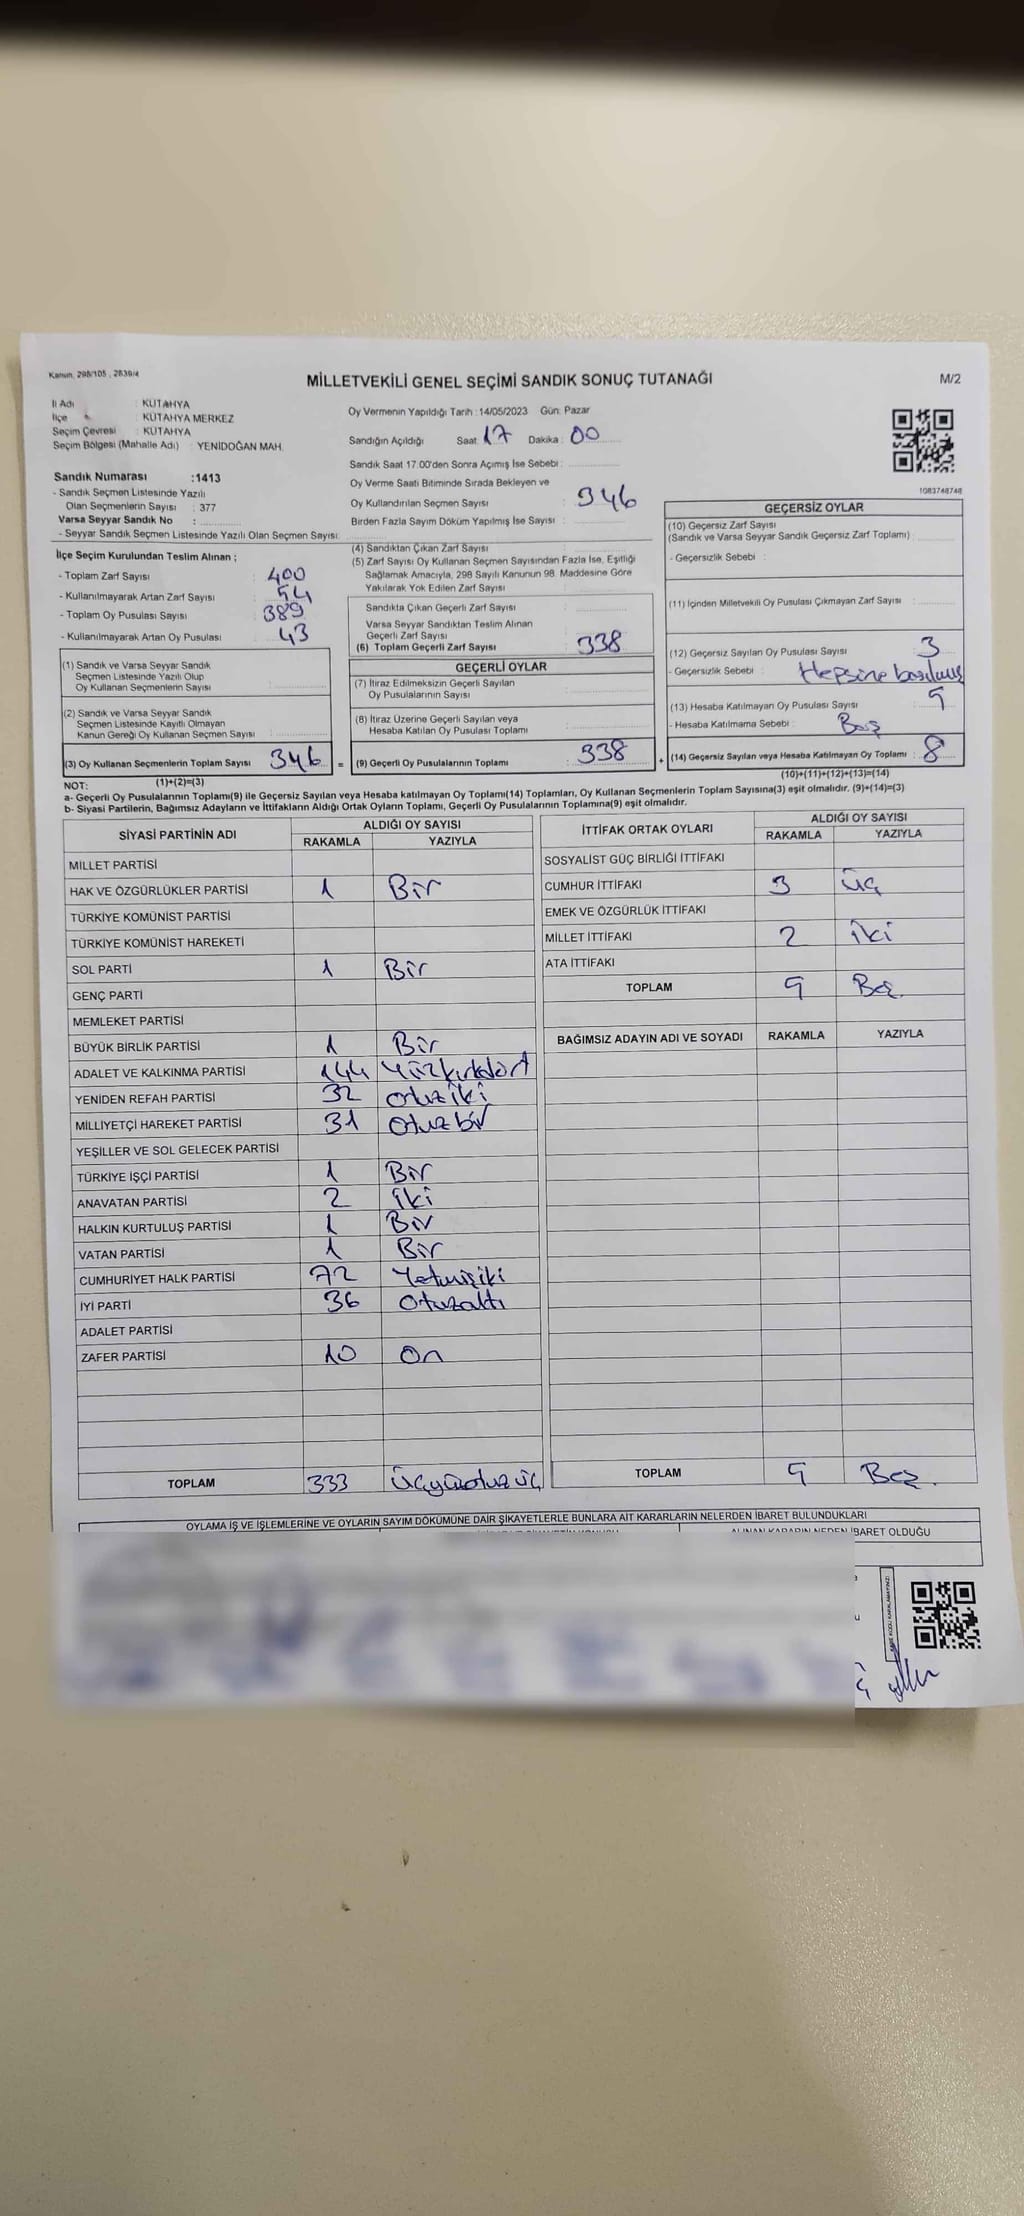 Kanun, 298/105 , 2839/4
MİLLETVEKİLİ GENEL SEÇİMİ SANDIK SONUÇ TUTANAĞI
M/2
İl Adı : KÜTAHYA
İlçe : KÜTAHYA MERKEZ
Seçim Çevresi : KÜTAHYA
Seçim Bölgesi (Mahalle Adı) : YENİDOĞAN MAH.
Sandık Numarası :1413
- Sandık Seçmen Listesinde Yazılı
Olan Seçmenlerin Sayısı : 377
Varsa Seyyar Sandık No :
- Seyyar Sandık Seçmen Listesinde Yazılı Olan Seçmen Sayısı:
Oy Vermenin Yapıldığı Tarih :14/05/2023 Gün: Pazar
Sandığın Açıldığı Saat 17 Dakika : 00
Sandık Saat 17:00'den Sonra Açımış İse Sebebi :
Oy Verme Saati Bitiminde Sırada Bekleyen ve
Oy Kullandırılan Seçmen Sayısı : 346
Birden Fazla Sayım Döküm Yapılmış İse Sayısı :
1083748748
İlçe Seçim Kurulundan Teslim Alınan ;
- Toplam Zarf Sayısı : 400
- Kullanılmayarak Artan Zarf Sayısı : 54
- Toplam Oy Pusulası Sayısı : 389
- Kullanılmayarak Artan Oy Pusulası : 43
(1) Sandık ve Varsa Seyyar Sandık
Seçmen Listesinde Yazılı Olup
Oy Kullanan Seçmenlerin Sayısı :
(2) Sandık ve Varsa Seyyar Sandık
Seçmen Listesinde Kayıtlı Olmayan
Kanun Gereği Oy Kullanan Seçmen Sayısı :
(3) Oy Kullanan Seçmenlerin Toplam Sayısı : 346 =
(4) Sandıktan Çıkan Zarf Sayısı :
(5) Zarf Sayısı Oy Kullanan Seçmen Sayısından Fazla İse, Eşitliği
Sağlamak Amacıyla, 298 Sayılı Kanunun 98. Maddesine Göre
Yakılarak Yok Edilen Zarf Sayısı :
Sandıkta Çıkan Geçerli Zarf Sayısı :
Varsa Seyyar Sandıktan Teslim Alınan
Geçerli Zarf Sayısı :
(6) Toplam Geçerli Zarf Sayısı : 338
GEÇERLİ OYLAR
(7) İtiraz Edilmeksizin Geçerli Sayılan
Oy Pusulalarının Sayısı :
(8) İtiraz Üzerine Geçerli Sayılan veya
Hesaba Katılan Oy Pusulası Toplamı :
(9) Geçerli Oy Pusulalarının Toplamı : 338 +
GEÇERSİZ OYLAR
(10) Geçersiz Zarf Sayısı
(Sandık ve Varsa Seyyar Sandık Geçersiz Zarf Toplamı) :
- Geçersizlik Sebebi :
(11) İçinden Milletvekili Oy Pusulası Çıkmayan Zarf Sayısı :
(12) Geçersiz Sayılan Oy Pusulası Sayısı : 3
- Geçersizlik Sebebi : Hepsine basılmış
(13) Hesaba Katılmayan Oy Pusulası Sayısı : 5
- Hesaba Katılmama Sebebi : Boş
(14) Geçersiz Sayılan veya Hesaba Katılmayan Oy Toplamı : 8
NOT: (1)+(2)=(3)
(10)+(11)+(12)+(13)=(14)
a- Geçerli Oy Pusulalarının Toplamı(9) ile Geçersiz Sayılan veya Hesaba katılmayan Oy Toplamı(14) Toplamları, Oy Kullanan Seçmenlerin Toplam Sayısına(3) eşit olmalıdır. (9)+(14)=(3)
b- Siyasi Partilerin, Bağımsız Adayların ve İttifakların Aldığı Ortak Oyların Toplamı, Geçerli Oy Pusulalarının Toplamına(9) eşit olmalıdır.
SİYASİ PARTİNİN ADI
ALDIĞI OY SAYISI
RAKAMLA YAZIYLA
MİLLET PARTİSİ
HAK VE ÖZGÜRLÜKLER PARTİSİ 1 Bir
TÜRKİYE KOMÜNİST PARTİSİ
TÜRKİYE KOMÜNİST HAREKETİ
SOL PARTİ 1 Bir
GENÇ PARTİ
MEMLEKET PARTİSİ
BÜYÜK BİRLİK PARTİSİ 1 Bir
ADALET VE KALKINMA PARTİSİ 144 Yüzkırkdört
YENİDEN REFAH PARTİSİ 32 otuziki
MİLLİYETÇİ HAREKET PARTİSİ 31 otuzbir
YEŞİLLER VE SOL GELECEK PARTİSİ
TÜRKİYE İŞÇİ PARTİSİ 1 Bir
ANAVATAN PARTİSİ 2 iki
HALKIN KURTULUŞ PARTİSİ 1 Bir
VATAN PARTİSİ 1 Bir
CUMHURİYET HALK PARTİSİ 72 Yetmişiki
İYİ PARTİ 36 otuzaltı
ADALET PARTİSİ
ZAFER PARTİSİ 10 On
TOPLAM 333 Üçyüzotuzüç
İTTİFAK ORTAK OYLARI
ALDIĞI OY SAYISI
RAKAMLA YAZIYLA
SOSYALİST GÜÇ BİRLİĞİ İTTİFAKI
CUMHUR İTTİFAKI 3 Üç
EMEK VE ÖZGÜRLÜK İTTİFAKI
MİLLET İTTİFAKI 2 iki
ATA İTTİFAKI
TOPLAM 5 Beş
BAĞIMSIZ ADAYIN ADI VE SOYADI RAKAMLA YAZIYLA
TOPLAM 5 Beş.
OYLAMA İŞ VE İŞLEMLERİNE VE OYLARIN SAYIM DÖKÜMÜNE DAİR ŞİKAYETLERLE BUNLARA AİT KARARLARIN NELERDEN İBARET BULUNDUKLARI
ALINAN KARARIN NEDEN İBARET OLDUĞU